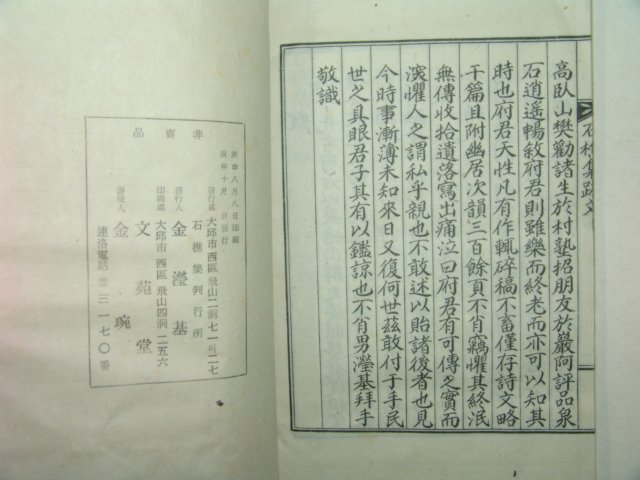 石樵集跋文
高臥山樊勸諸生於村塾招朋友於巖阿評品泉
石逍遥暢敘府君則雖樂而終老而亦可以知其
時也府君天性凡有作輒碎稿不畜僅存詩文略
干篇且附幽居次韻三百餘頁不肖竊懼其終泯
無傳收拾遺落寫出痛泣曰府君有可傳之實而
深懼人之謂私乎親也不敢述以貽諸後者也見
今時事漸薄未知來日又復何世茲敢付于手民
世之具眼君子其有以鑑諒也不肖男瀅基拜手
敬識
非賣品
庚申八月八日印刷
庚申十月 日發行
發行處 大邱市西區飛山二洞七一차二七
石樵集刊行所
發行人 金瀅基
印刷處 大邱市西區飛山四洞二二五六
文苑堂
書役人 金琬
連洛電話 三一七〇番